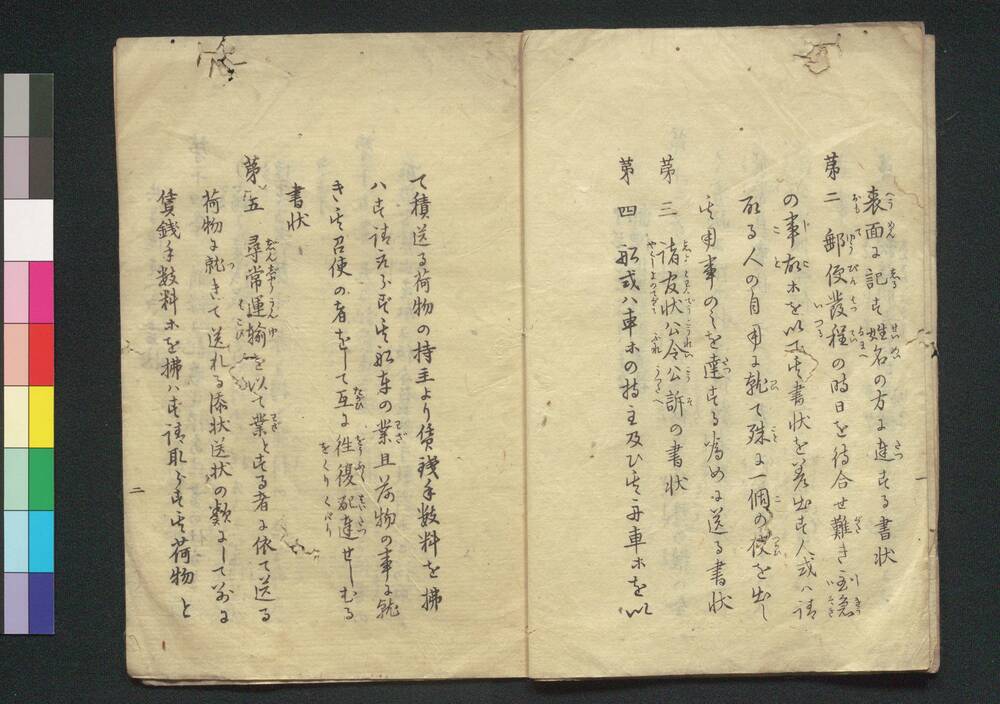 表面に記す姓名の方に達する書状
第二 郵便発程の時日を待合せ難き至急
の事故ホを以て其書状を差出す人或ハ請
取る人の自用に就て殊に一個の使を出し
其用事のミを達する為めに送る書状
第三 諸友状公令公訴の書状
第四 船或ハ車ホの持主及ひ其舟車ホを以
一
て積送る荷物の持主より賃銭手数料を拂
ハす請取らす其船車の業且荷物の事に就
き其召使の者をして互に往復配達せしむる
書状
第五 尋常運輸を以て業とする者に依て送る
荷物に就きて送れる添状送状の類にして別に
賃銭手数料ホを拂ハす請取らす其荷物と
二